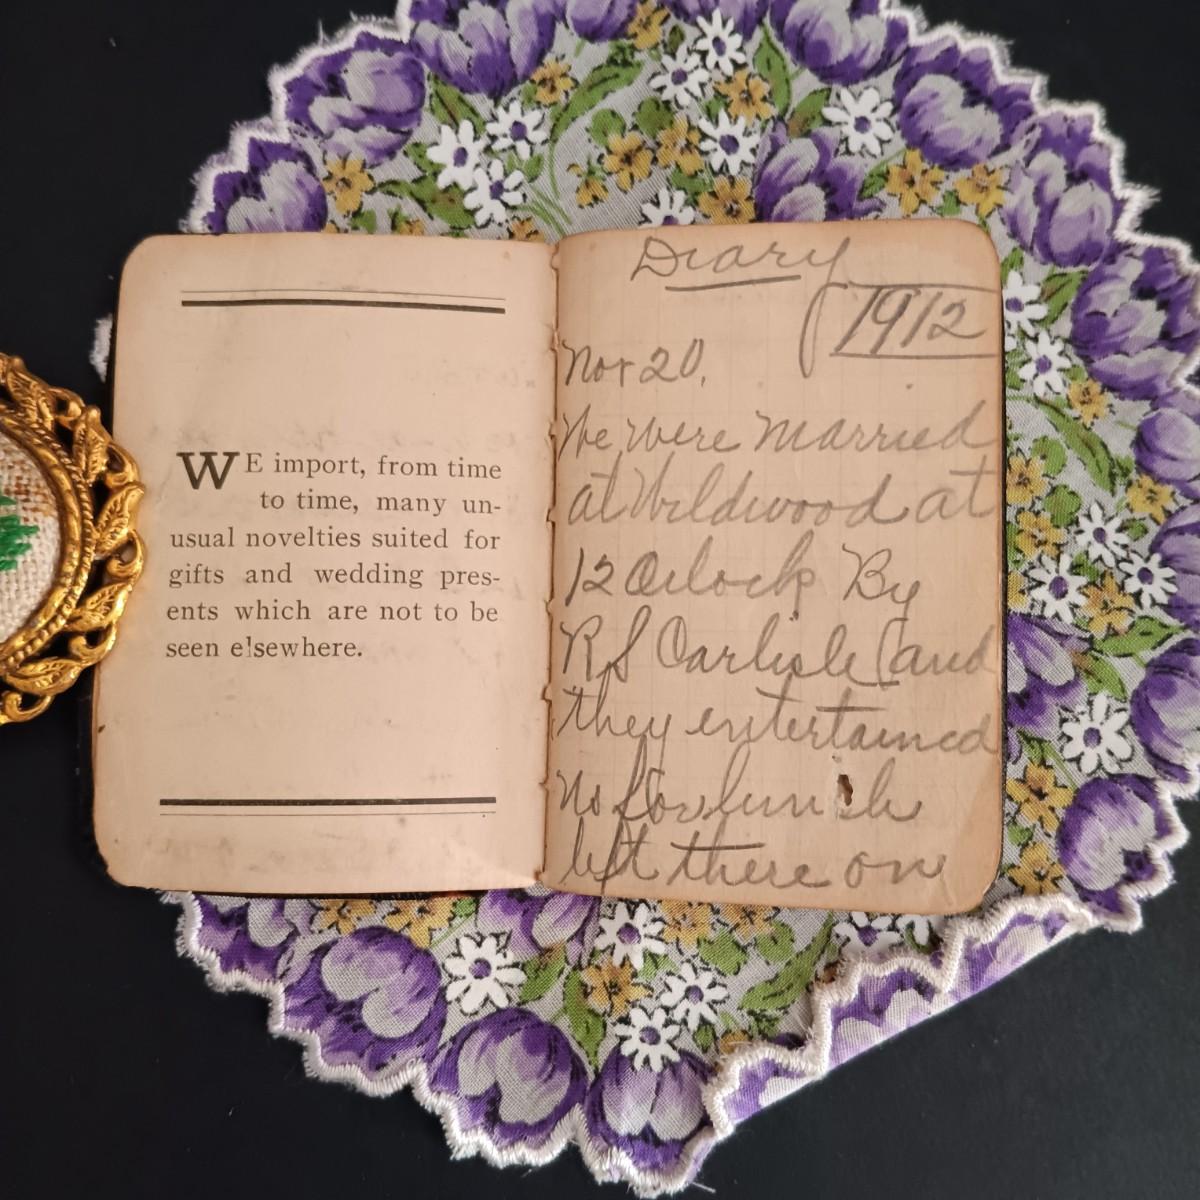 WE import, from time
to time, many un-
usual novelties suited for
gifts and wedding pres-
ents which are not to be
seen elsewhere.
Diary
1912
Nov 20.
We were married
at Wildwood at
12 Oclock By
R S Carlisle (and
they entertained
us for lunch
left there on